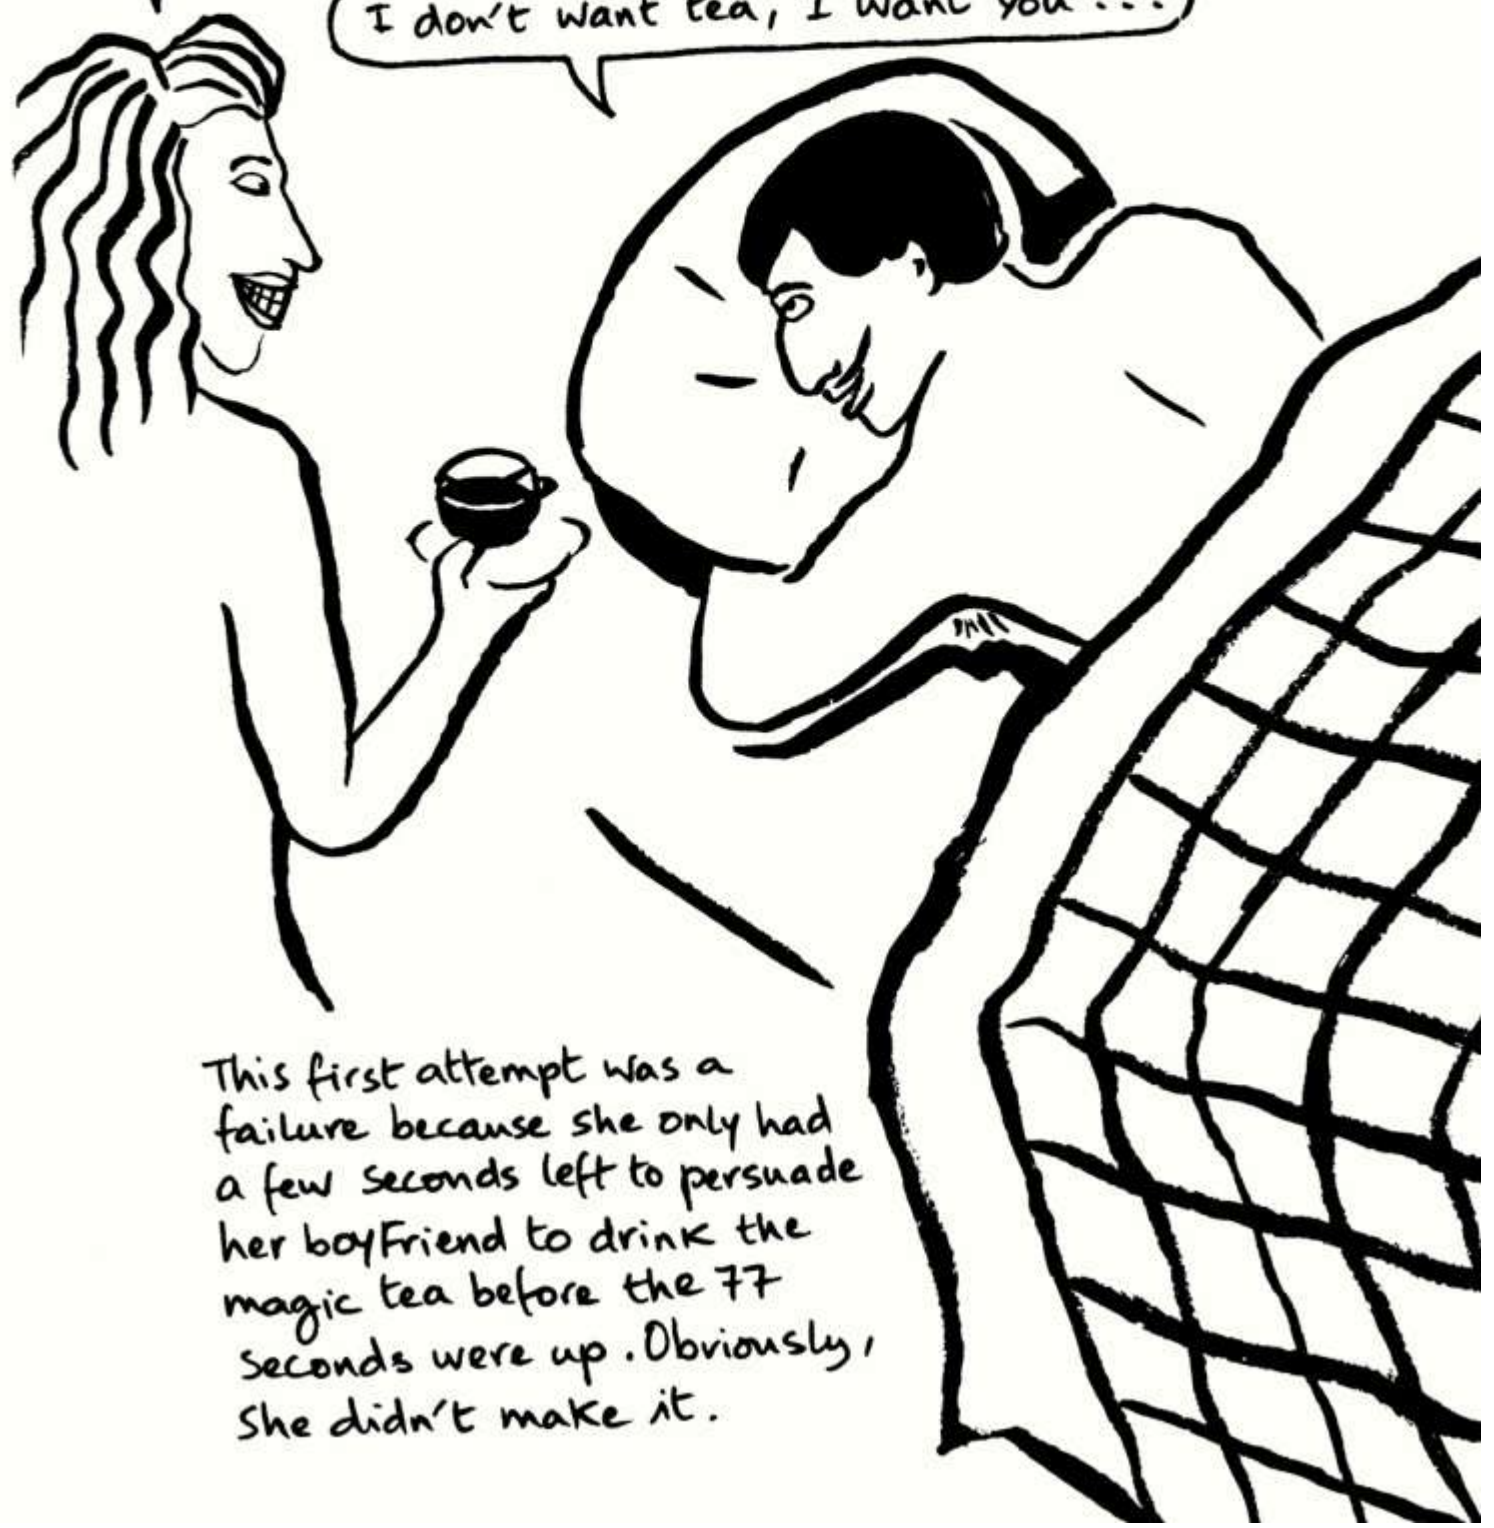 I don't want tea, I want you...
This first attempt was a
failure because she only had
a few seconds left to persuade
her boyFriend to drink the
magic tea before the 77
seconds were up. Obviously,
she didn't make it.